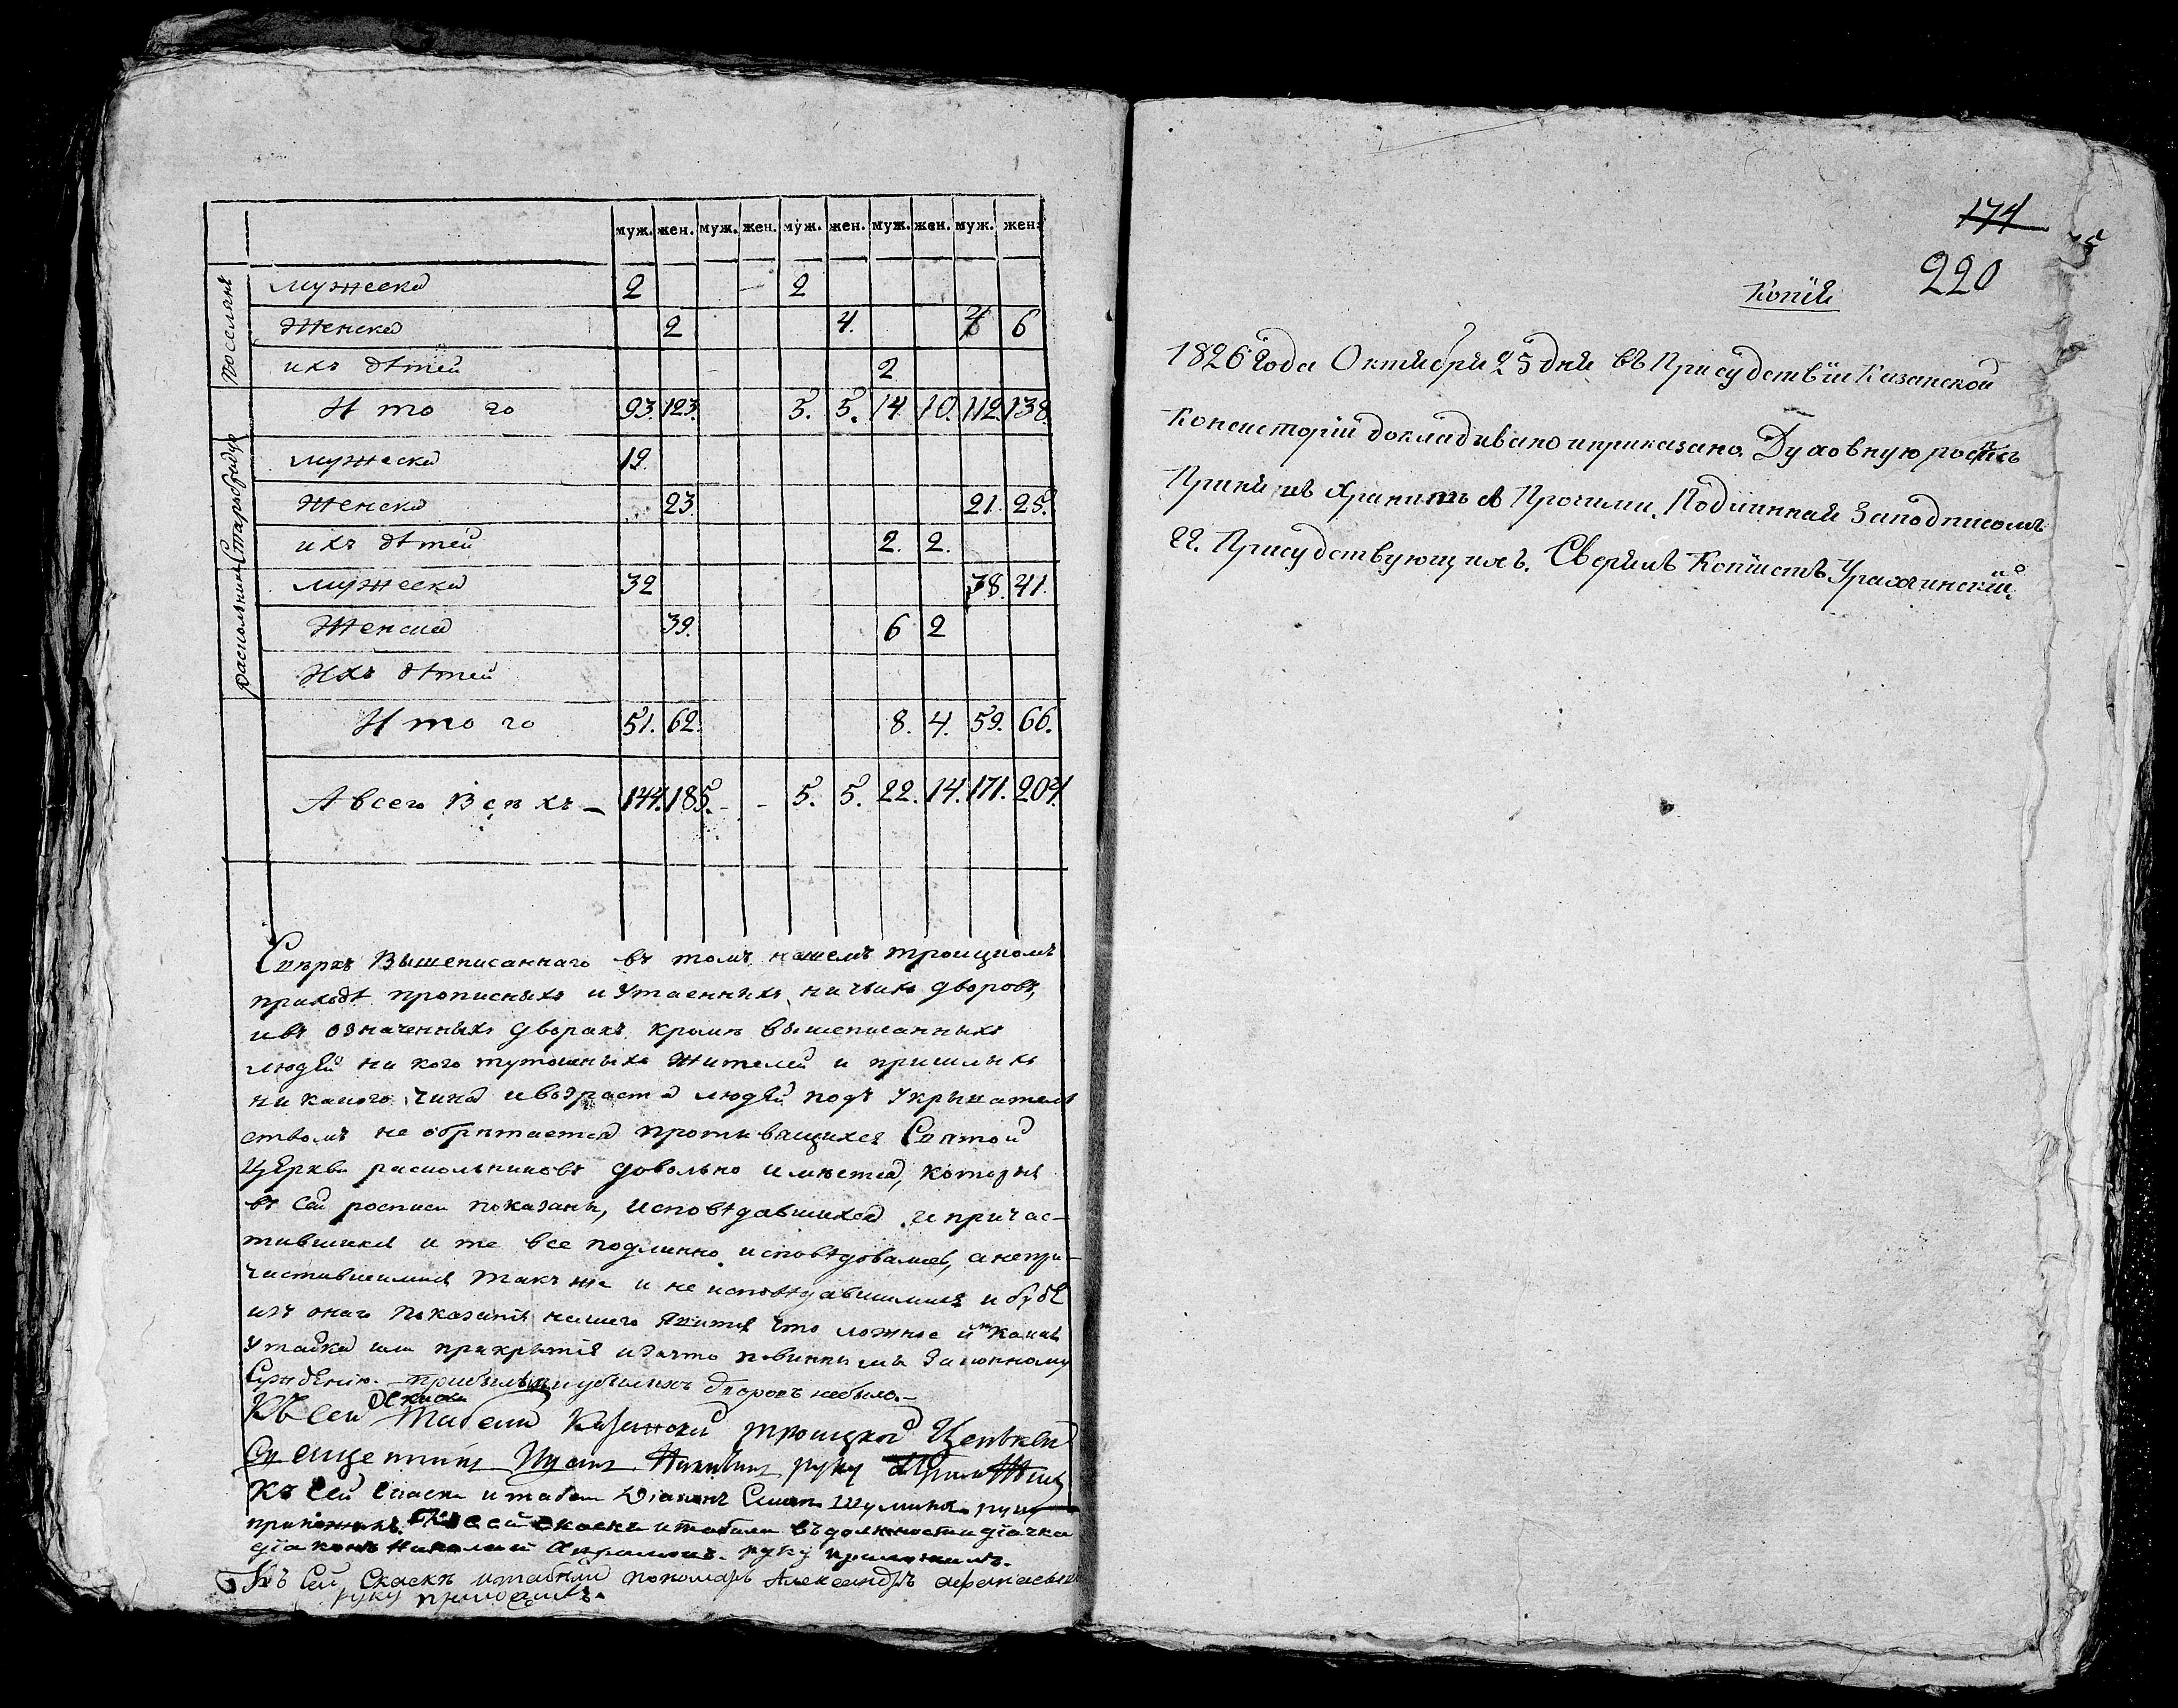 муж. жен. муж. жен. муж. жен. муж. жен. муж. жен.
поселянъ
мужеска 2 - 2
Женска 2 4. 4 6
ихъ дѣтей 2
И то го 93. 123. 5. 5. 14 10. 112. 138.
мужеска 19.
Женска 23. 21. 25.
ихъ дѣтей 2. 2.
мужеска 32 38. 41.
Женска 39. 6 2
Ихъ дѣтей
И то го 51. 62. 8. 4. 59. 66.
А всего Всѣхъ - 144. 185. - - 5. 5. 22. 14. 171. 204.
Свѣрхъ Вышеписаннаго въ томъ нашемъ троицкомъ
приходѣ прописныхъ и утаенныхъ ни чьихъ дворовъ,
ивъ означенныхъ дворахъ кромѣ вышеписанныхъ
людей ни кого тутошныхъ жителей и пришлыхъ
ни какого чина ивозраста людей подъ укрывател
ствомъ не обрѣтается противящихся Святой
Церкви раскольниковъ довольно имѣется, которыя
въ сей росписи показаны, исповѣдавшихся и причас-
тившихся и те все подлинно исповѣдовались, а непри-
частившимися такъ же и не исповѣдавшимися и будѣ
изъ онаго показанія нашего явится что ложное и какая
утайка или прикрытія изато повинны мы законному
Сужденію. - дворовъ небыло. -
Къ сей Табели Казанской троицкой Церкви
Священникъ руку
Къ Сей скаски и табели Діаконъ руку
скаски итабели въ должности дiачка
дiаконъ Николай руку приложилъ.
Къ Сей Скаскѣ итабели пономарь Александръ афанасьевъ
руку приложилъ.
174
220
Копія
1826 года Октября 25 дня въ Присудствіи Казанской
Консисторіи докладывано и приказано. Духовную роспись
Принявъ хранить съ Прочими. Подлинная Заподписомъ
гг. Присудствующихъ. Сверялъ Копіистъ